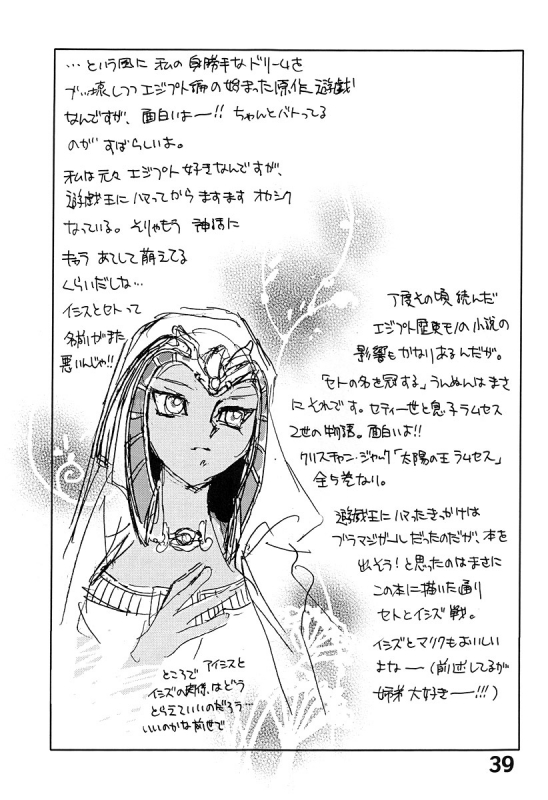 …という風に 私の 身勝手なドリームを
ブッ壊しつつ エジプト編の始まった原作遊戯
なんですが、面白いよー!! ちゃんとバトってる
のが すばらしいよ。
私は元々 エジプト好きなんですが、
遊戯王にハマってから ますます オカシク
なっている。そりゃもう 神話に
キャラ あてして萌えてる
くらいだしな…
イシスとセトって
名前がまた
悪いんじゃ!!
丁度その頃 読んだ
エジプト歴史モノの小説の
影響も かなりあるんだが。
「セトの名を冠する」うんぬんは まさ
に それです。セティ一世と息子ラムセス
2世の物語。面白いよ!!
クリスチャン・ジャック「太陽の王 ラムセス」
全5巻なり。
遊戯王に ハマったきっかけは
ブラマジガールだったのだが、本を
出そう!と思ったのは まさに
この本に描いた通り
セトとイシズ戦。
イシズとマリクもおいしい
よなー(前述してるが
姉弟 大好きー!!!)
ところで アイシスと
イシズの関係はどう
とらえていいのだろう…
いいのかな前世で
39